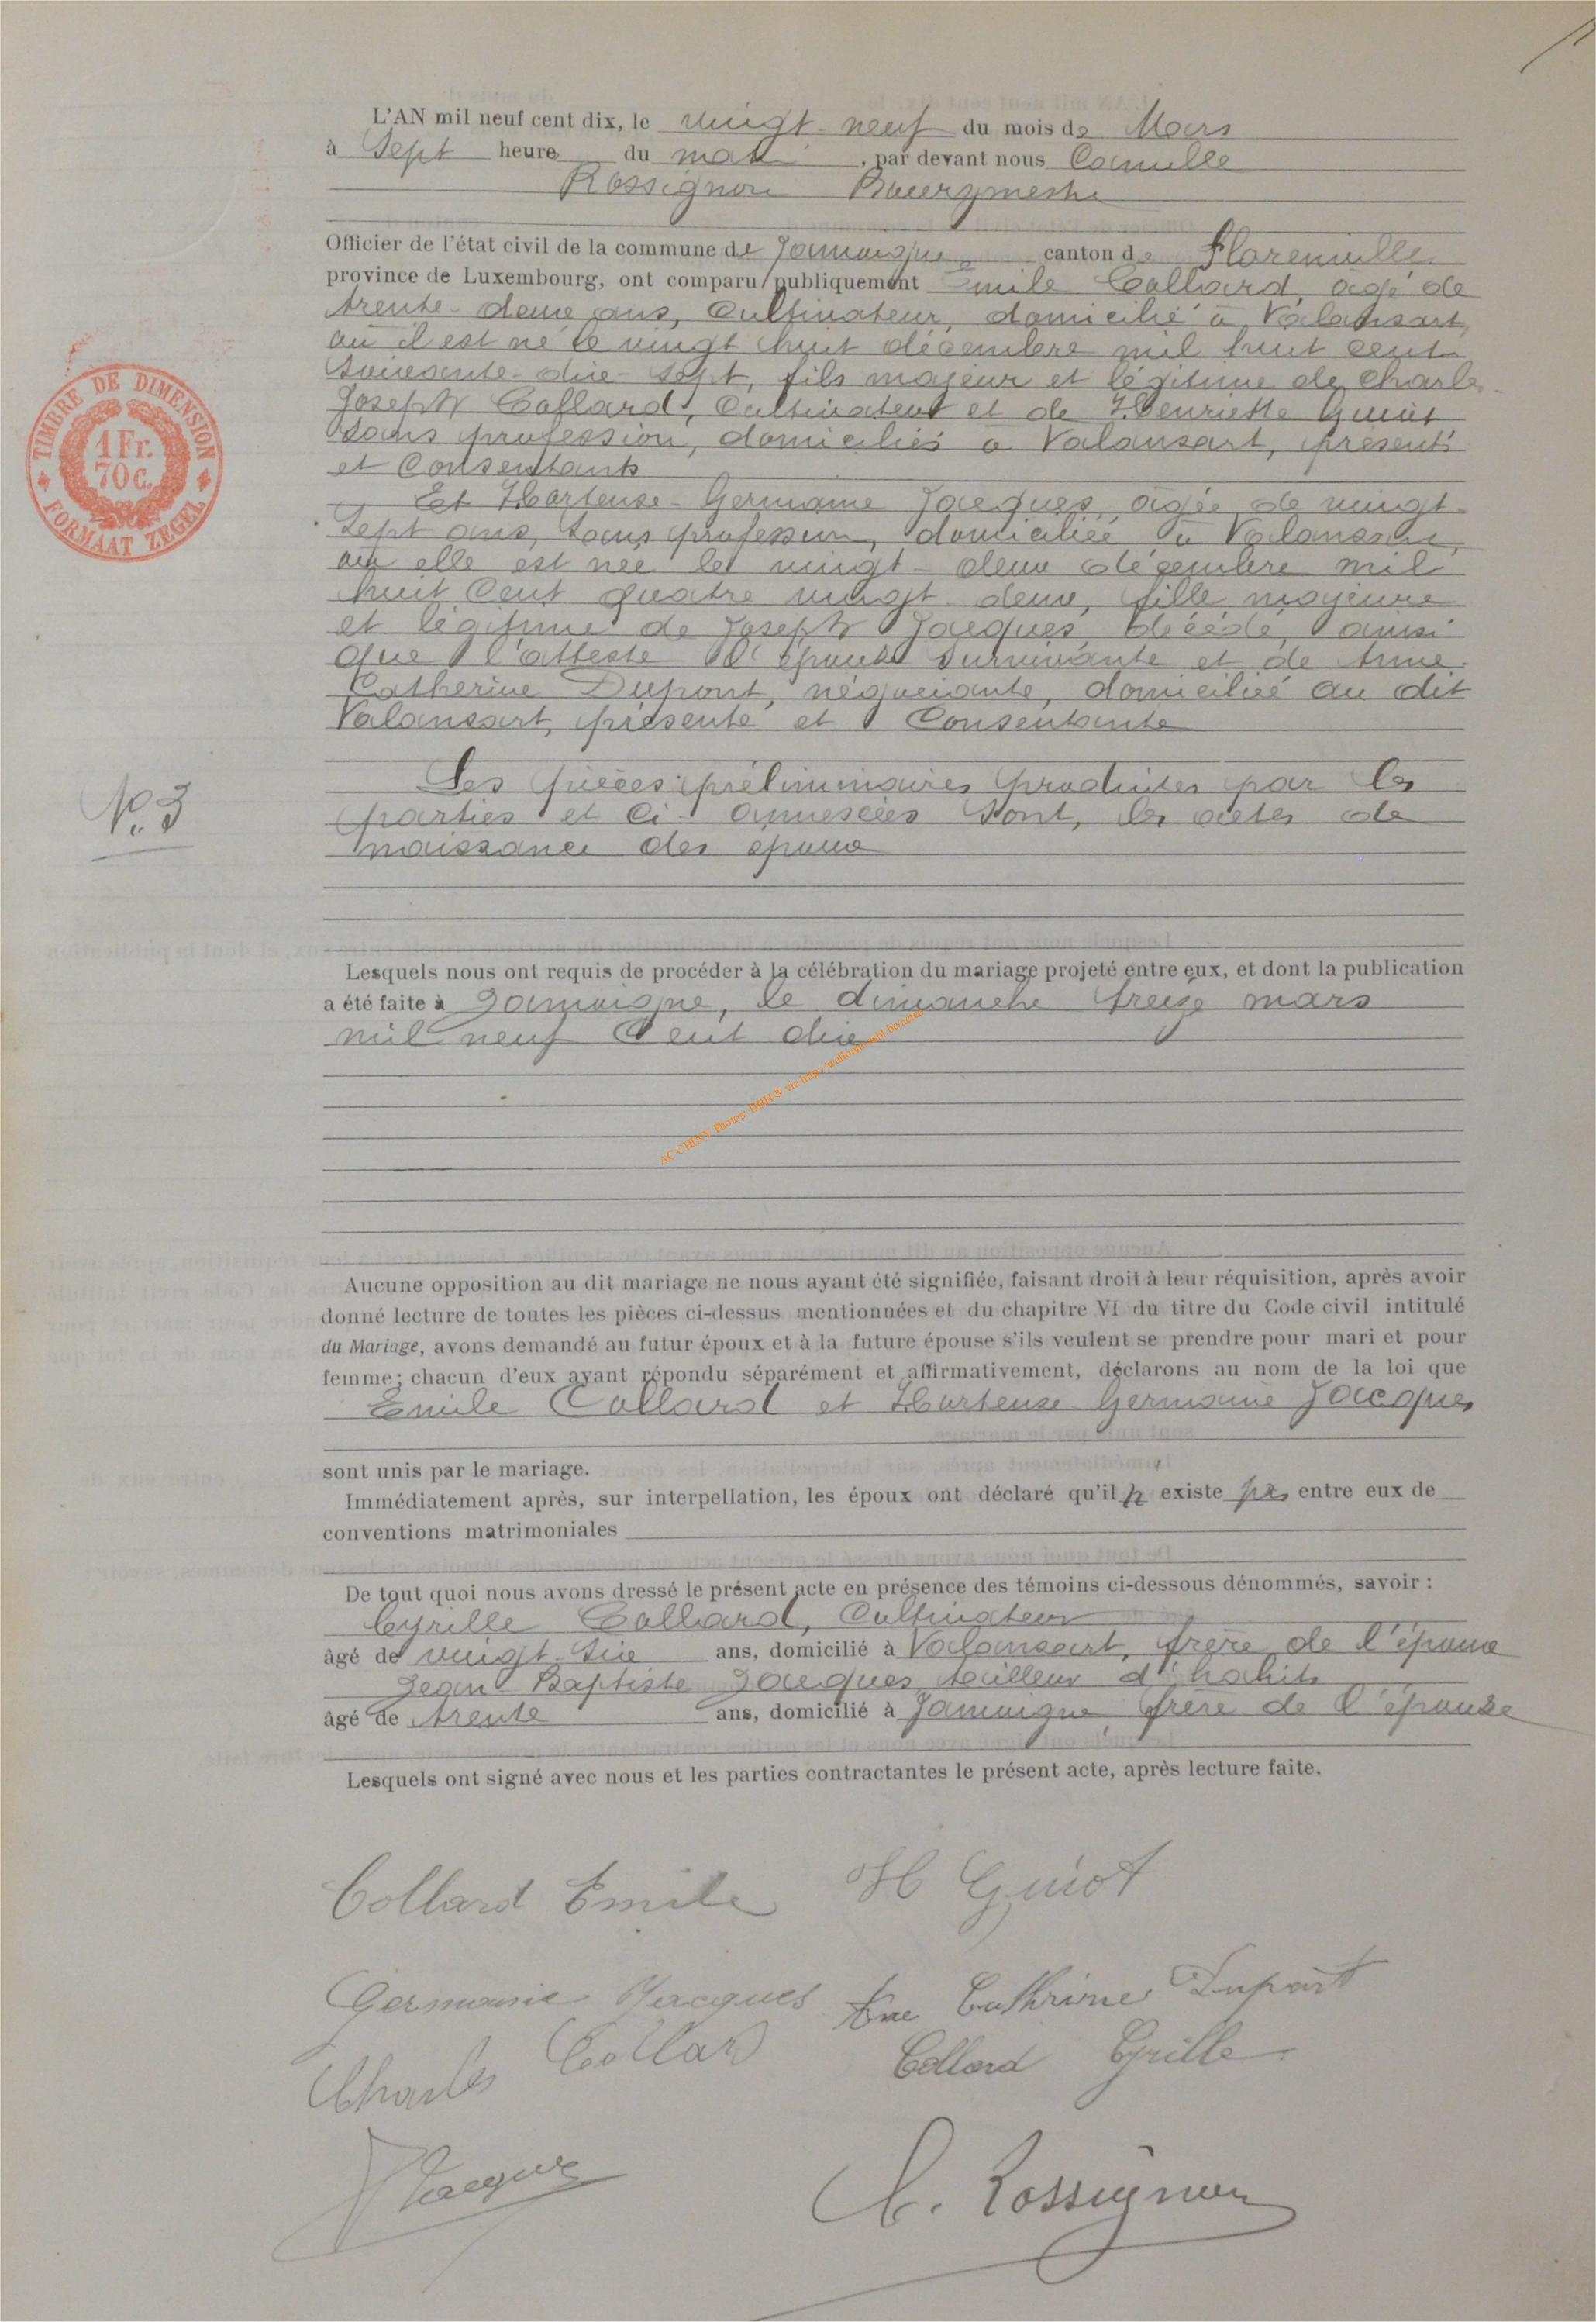 L'AN mil neuf cent dix, le vingt-neuf du mois de Mars
à Sept heures du matin, par devant nous Camille
Rossignon Bourgmestre
Officier de l'état civil de la commune de Jamoigne, canton de Florenville
province de Luxembourg, ont comparu publiquement Emile Collard, âgé de
trente-deux ans, Cultivateur, domicilié à Valansart,
où il est né le vingt huit décembre mil huit cent
soixante-dix-sept, fils majeur et légitime de Charles
Joseph Collard, Cultivateur et de Henriette Guiot
sans profession, domiciliés à Valansart, présents
et Consentants
Et Hortense-Germaine Jacques, âgée de vingt-
sept ans, sans profession, domiciliée à Valansart,
où elle est née le vingt-deux décembre mil
huit Cent quatre vingt deux, fille majeure
et légitime de Joseph Jacques, décédé, ainsi
que l'atteste l'épouse survivante et de Anne
Catherine Dupont, négociante, domiciliée au dit
Valansart, présente et Consentante
N°. 3
Les pièces préliminaires produites par les
parties et Ci-annexées sont, les actes de
naissance des époux
Lesquels nous ont requis de procéder à la célébration du mariage projeté entre eux, et dont la publication
a été faite à Jamoigne, le dimanche treize mars
mil neuf Cent dix
Aucune opposition au dit mariage ne nous ayant été signifiée, faisant droit à leur réquisition, après avoir
donné lecture de toutes les pièces ci-dessus mentionnées et du chapitre VI du titre du Code civil intitulé
du Mariage, avons demandé au futur époux et à la future épouse s'ils veulent se prendre pour mari et pour
femme; chacun d'eux ayant répondu séparément et affirmativement, déclarons au nom de la loi que
Emile Collard et Hortense-Germaine Jacques
sont unis par le mariage.
Immédiatement après, sur interpellation, les époux ont déclaré qu'il n'existe pas entre eux de
conventions matrimoniales
De tout quoi nous avons dressé le présent acte en présence des témoins ci-dessous dénommés, savoir :
Cyrille Collard, Cultivateur
âgé de vingt-six ans, domicilié à Valansart, frère de l'époux
Jean Baptiste Jacques, tailleur d'habits
âgé de trente ans, domicilié à Jamoigne, frère de l'épouse
Lesquels ont signé avec nous et les parties contractantes le présent acte, après lecture faite.
Collard Emile H Guiot
Germaine Jacques Ane Cathrine Dupont
Charles Collard Collard Cyrille
Jacques C. Rossignon
TIMBRE DE DIMENSION
1 Fr.
70 C.
FORMAAT ZEGEL